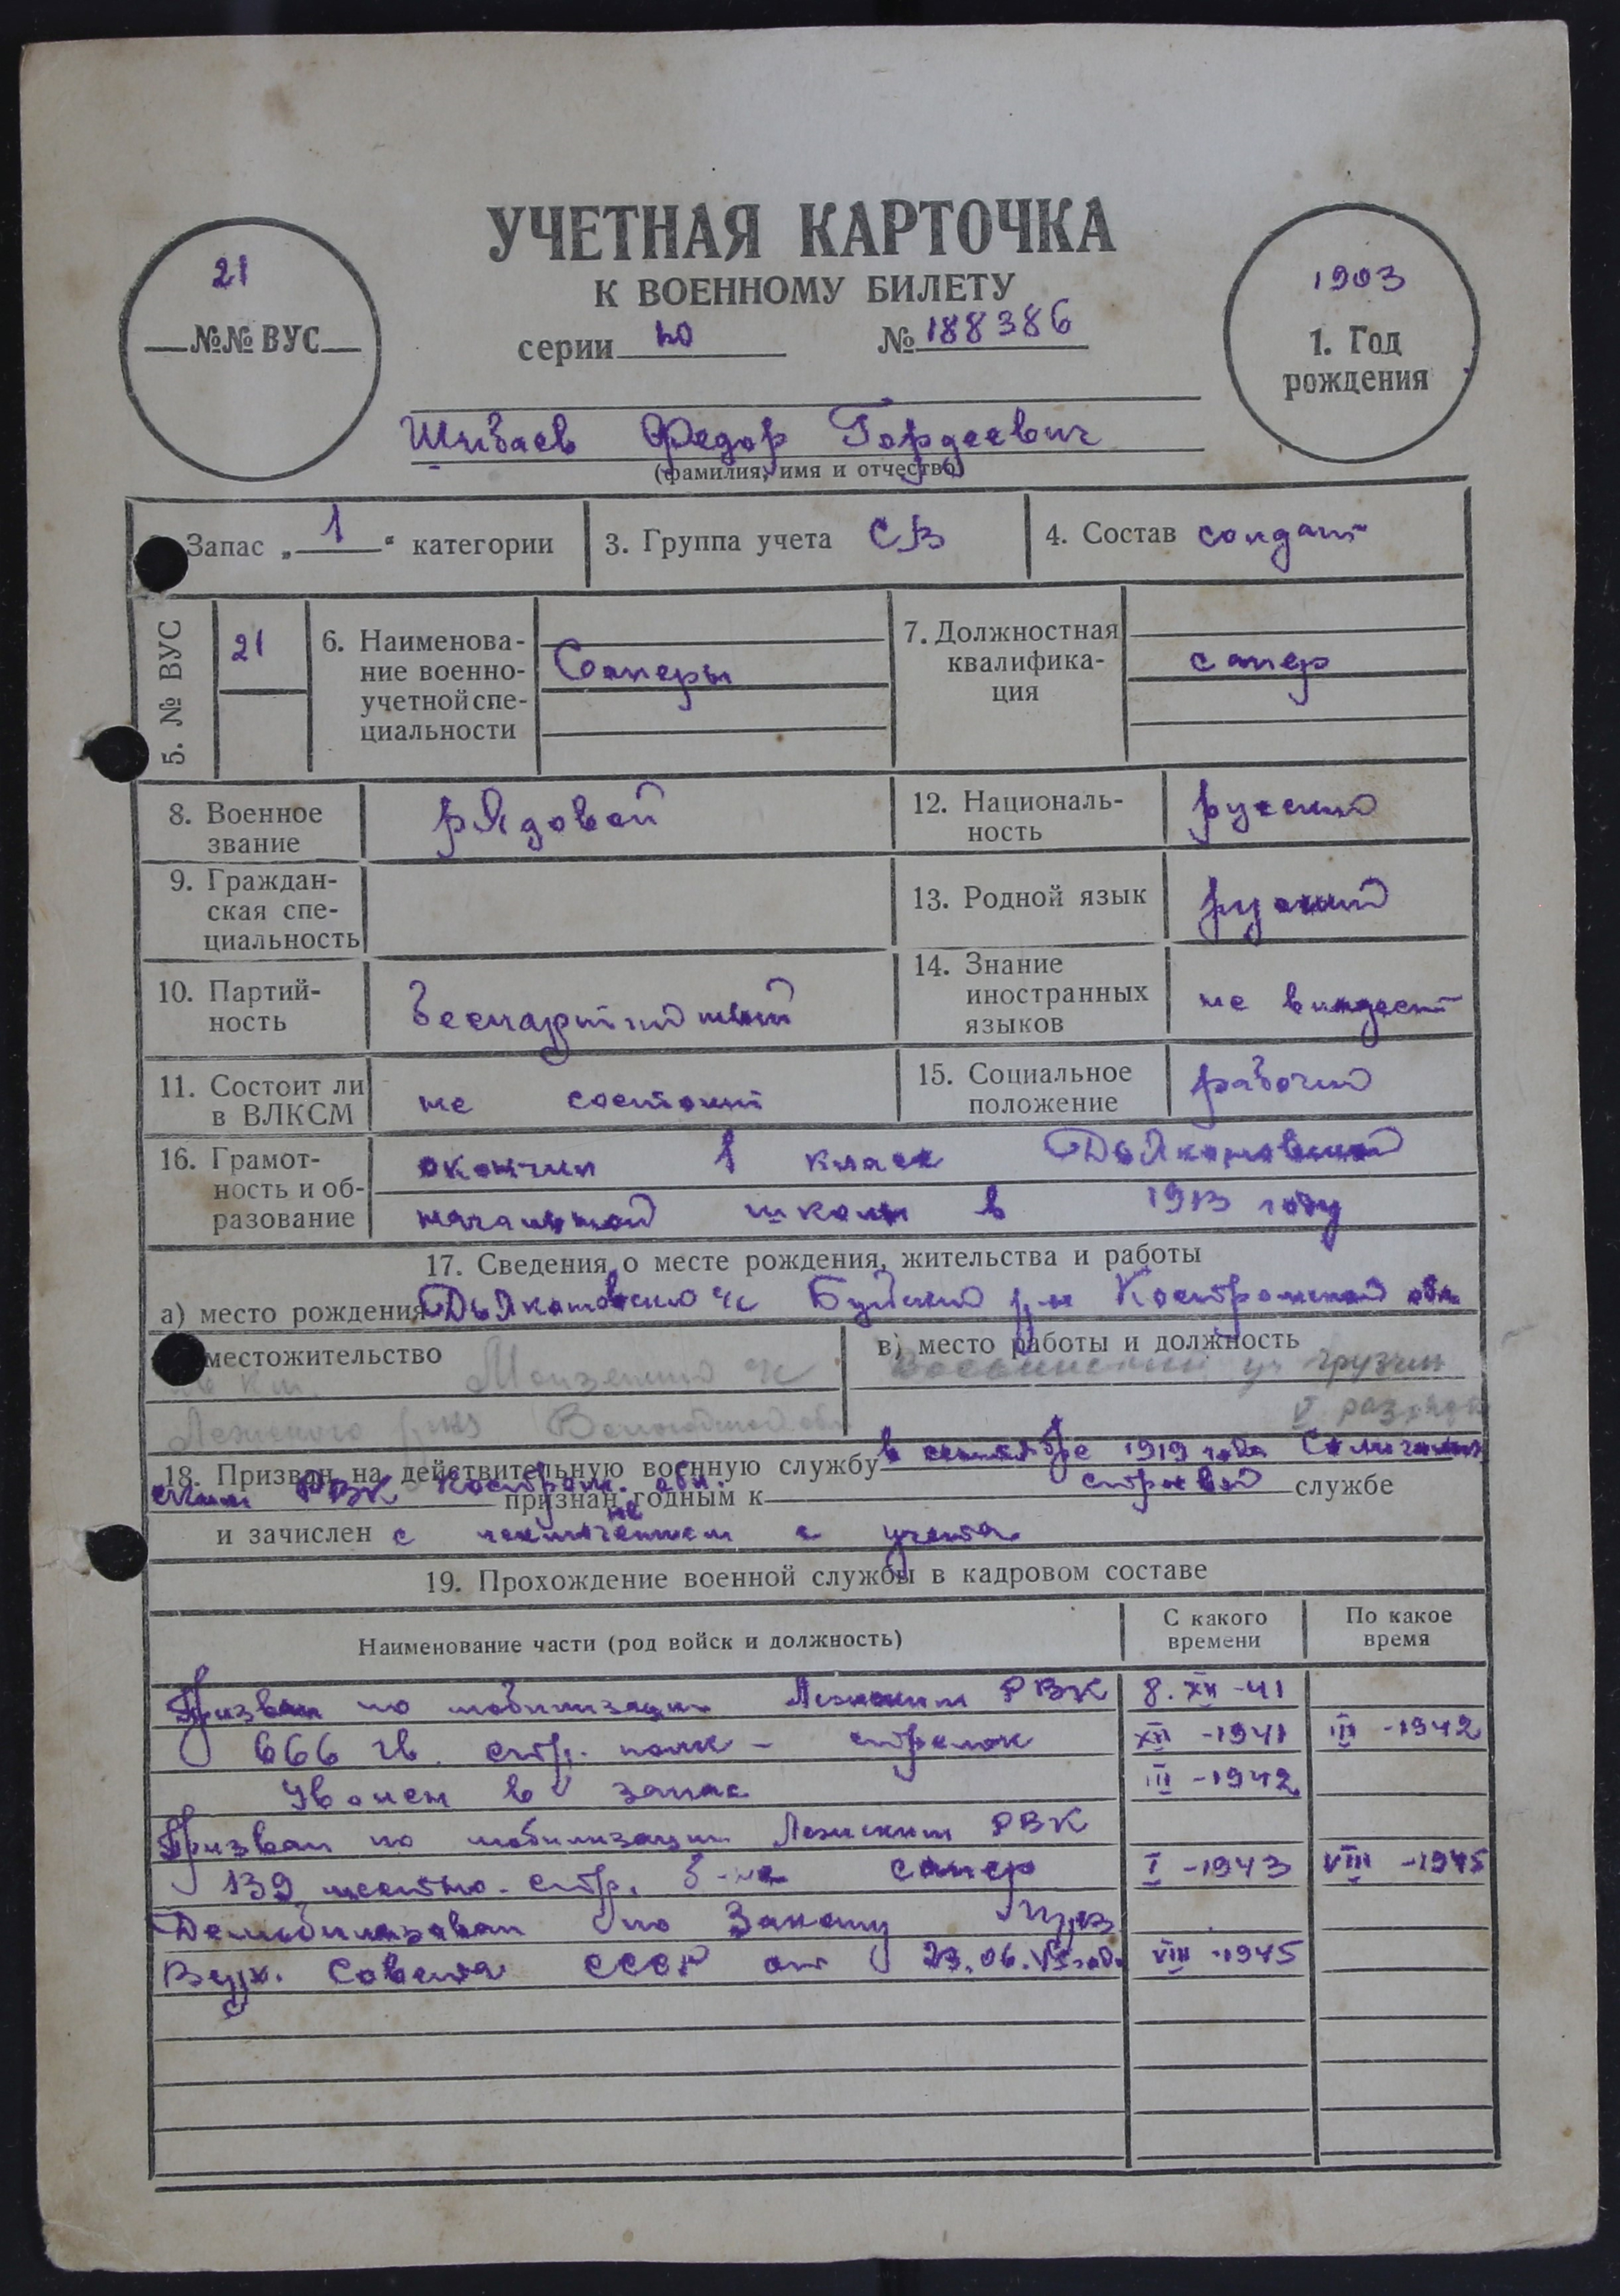 УЧЕТНАЯ КАРТОЧКА
К ВОЕННОМУ БИЛЕТУ
серии № 188386
21
№№ ВУС
1903
1. Год
рождения
Шибаев Федор Гордеевич
(фамилия, имя и отчество)
Запас „ 1 “ категории
3. Группа учета СВ
4. Состав солдат
5. № ВУС
21
6. Наименова-
ние военно-
учетной спе-
циальности
Саперы
7. Должностная
квалифика-
ция
сапер
8. Военное
звание
рядовой
12. Националь-
ность
русский
9. Граждан-
ская спе-
циальность
13. Родной язык
русский
10. Партий-
ность
беспартийный
14. Знание
иностранных
языков
не владеет
11. Состоит ли
в ВЛКСМ
не состоит
15. Социальное
положение
рабочий
16. Грамот-
ность и об-
разование
окончил 1 класс Дьяконовской
начальной школы в 1913 году
17. Сведения о месте рождения, жительства и работы
а) место рождения Дьяконовский с/с Буйский р-н Костромской обл.
местожительство
Монзенский с/с
Лежского р-на Вологодской обл
в) место работы и должность
уч грузчик
V разряда
18. Призван на действительную военную службу в сентябре 1919 года Солигалич
ским РВК Костром. обл. признан годным к строевой службе
не
и зачислен с исключением с учета
19. Прохождение военной службы в кадровом составе
Наименование части (род войск и должность)
С какого
времени
По какое
время
Призван по мобилизации Лежским РВК 8.XII-41
666 гв. стр. полк – стрелок XII-1941 III-1942
Уволен в запас III-1942
Призван по мобилизации Лежским РВК
139 местно-стр. б-н сапер I-1943 VIII-1945
Демобилизован по Закону през
Верх. Совета СССР от 23.06.45 года VIII-1945